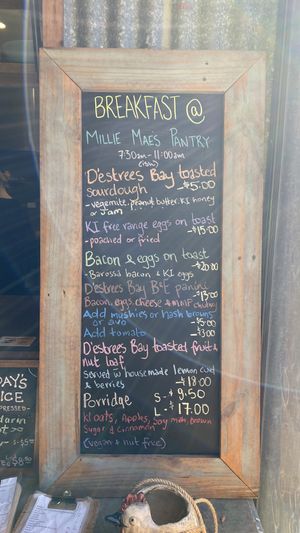 BREAKFAST @
MILLIE MAES PANTRY
7:30am - 11:00am
(ish)
D'estrees Bay toasted
sourdough -$5.00
- vegemite, peanut butter, K.I. honey
or Jam
KI free range eggs on toast
- poached or fried -$15.00
Bacon & eggs on toast
- Barossa bacon & KI eggs -$20.00
D'estrees Bay B&E panini
Bacon, eggs, cheese & MMP -$13.00
Add mushies or hash browns
or avo -$5.00
Add tomato -$3.00
D'estrees Bay toasted fruit &
nut loaf
Served w/ housemade lemon curd
& berries -$18.00
Porridge S - $9.50
L - $17.00
Kl oats, Apples, Soy milk, brown
Sugar & Cinnamon
(vegan & nut free)
AY'S
ICE
PRESSED-
darin